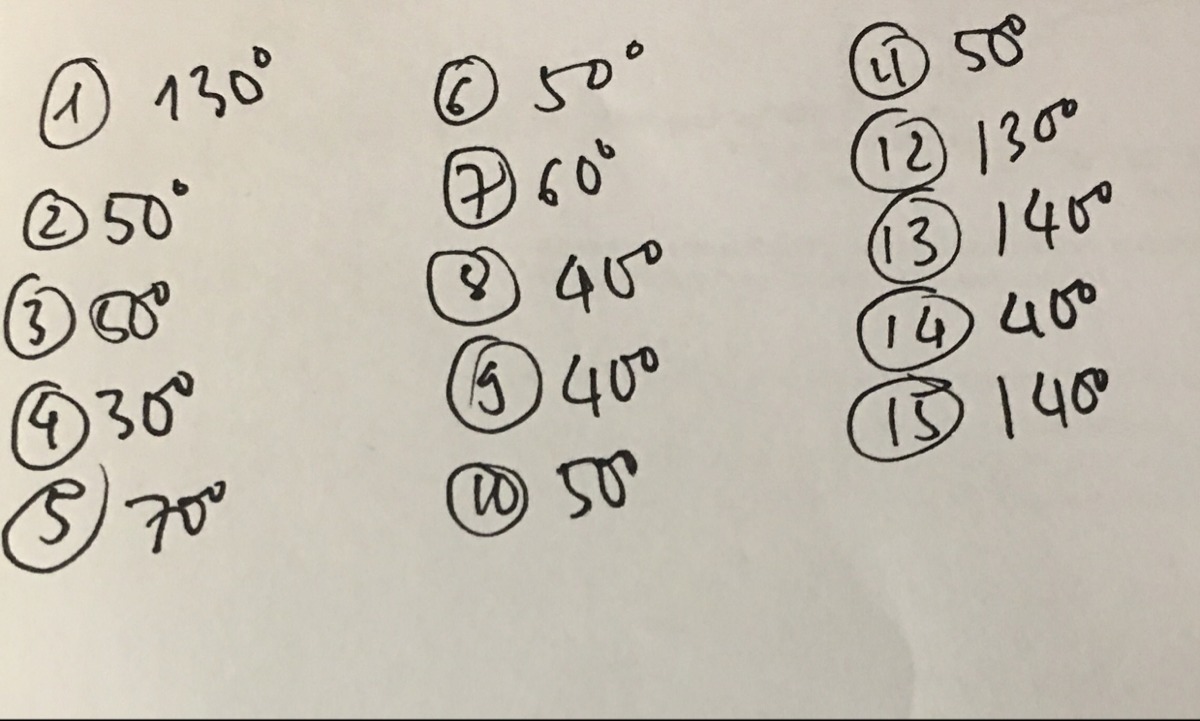 1 130°
2 50°
3 50°
4 30°
5 70°
6 50°
7 60°
8 40°
9 40°
10 50°
11 50°
12 130°
13 140°
14 40°
15 140°